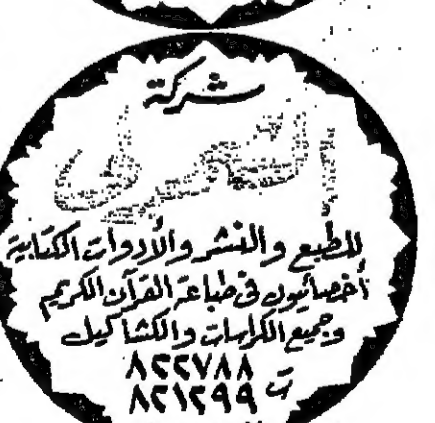 شركة
للطبع والنشر والأدوات الكتابية
أخصائيون فى طباعة القرآن الكريم
وجميع الكراسات والكشاكيل
٨٢٢٧٨٨
ت ٨٢١٢٩٩